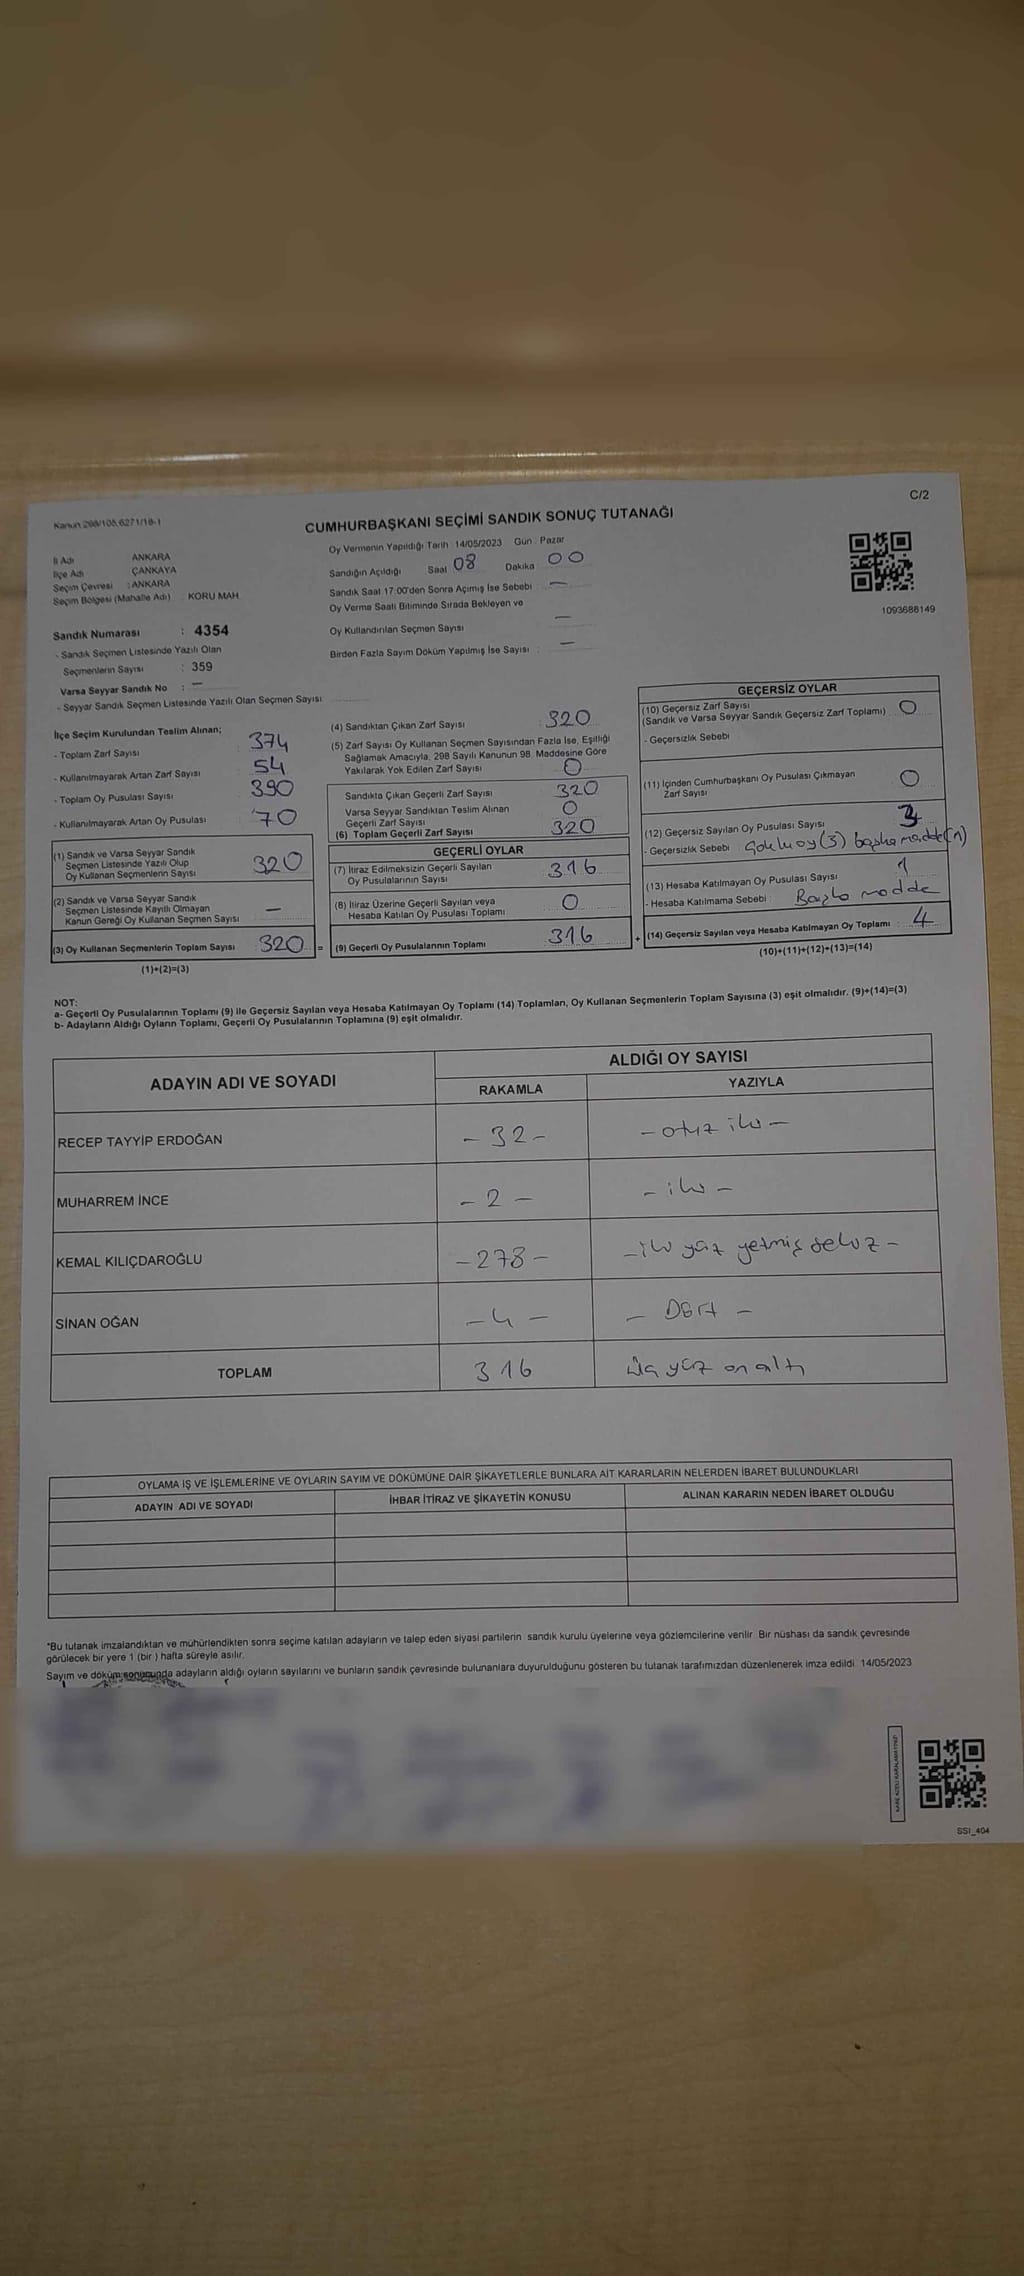 C/2
Kanun:298/105,6271/18-1
CUMHURBAŞKANI SEÇİMİ SANDIK SONUÇ TUTANAĞI
İl Adı ANKARA
İlçe Adı ÇANKAYA
Seçim Çevresi : ANKARA
Seçim Bölgesi (Mahalle Adı) KORU MAH
Sandık Numarası : 4354
- Sandık Seçmen Listesinde Yazılı Olan
Seçmenlerin Sayısı : 359
Varsa Seyyar Sandık No : —
- Seyyar Sandık Seçmen Listesinde Yazılı Olan Seçmen Sayısı
Oy Vermenin Yapıldığı Tarih 14/05/2023 Gün : Pazar
Sandığın Açıldığı Saat 08 Dakika 00
Sandık Saat 17:00'den Sonra Açımış İse Sebebi —
Oy Verme Saati Bitiminde Sırada Bekleyen ve
Oy Kullandırılan Seçmen Sayısı —
Birden Fazla Sayım Döküm Yapılmış İse Sayısı : —
1093688149
İlçe Seçim Kurulundan Teslim Alınan;
- Toplam Zarf Sayısı 374
- Kullanılmayarak Artan Zarf Sayısı 54
- Toplam Oy Pusulası Sayısı 390
- Kullanılmayarak Artan Oy Pusulası 70
(1) Sandık ve Varsa Seyyar Sandık
Seçmen Listesinde Yazılı Olup
Oy Kullanan Seçmenlerin Sayısı 320
(2) Sandık ve Varsa Seyyar Sandık
Seçmen Listesinde Kayıtlı Olmayan
Kanun Gereği Oy Kullanan Seçmen Sayısı —
(3) Oy Kullanan Seçmenlerin Toplam Sayısı 320 =
(1)+(2)=(3)
(4) Sandıktan Çıkan Zarf Sayısı : 320
(5) Zarf Sayısı Oy Kullanan Seçmen Sayısından Fazla İse, Eşitliği
Sağlamak Amacıyla, 298 Sayılı Kanunun 98. Maddesine Göre
Yakılarak Yok Edilen Zarf Sayısı 0
Sandıkta Çıkan Geçerli Zarf Sayısı 320
Varsa Seyyar Sandıktan Teslim Alınan
Geçerli Zarf Sayısı 0
(6) Toplam Geçerli Zarf Sayısı 320
GEÇERLİ OYLAR
(7) İtiraz Edilmeksizin Geçerli Sayılan
Oy Pusulalarının Sayısı 316
(8) İtiraz Üzerine Geçerli Sayılan veya
Hesaba Katılan Oy Pusulası Toplamı 0
(9) Geçerli Oy Pusulalarının Toplamı 316 +
GEÇERSİZ OYLAR
(10) Geçersiz Zarf Sayısı
(Sandık ve Varsa Seyyar Sandık Geçersiz Zarf Toplamı) 0
- Geçersizlik Sebebi
(11) İçinden Cumhurbaşkanı Oy Pusulası Çıkmayan
Zarf Sayısı 0
(12) Geçersiz Sayılan Oy Pusulası Sayısı 3
- Geçersizlik Sebebi Çoklu oy (3) başka madde (1)
(13) Hesaba Katılmayan Oy Pusulası Sayısı 1
- Hesaba Katılmama Sebebi Başka madde
(14) Geçersiz Sayılan veya Hesaba Katılmayan Oy Toplamı 4
(10)+(11)+(12)+(13)=(14)
NOT:
a- Geçerli Oy Pusulalarının Toplamı (9) ile Geçersiz Sayılan veya Hesaba Katılmayan Oy Toplamı (14) Toplamları, Oy Kullanan Seçmenlerin Toplam Sayısına (3) eşit olmalıdır. (9)+(14)=(3)
b- Adayların Aldığı Oyların Toplamı, Geçerli Oy Pusulalarının Toplamına (9) eşit olmalıdır.
ADAYIN ADI VE SOYADI ALDIĞI OY SAYISI
RAKAMLA YAZIYLA
RECEP TAYYİP ERDOĞAN - 32 - - otuz iki -
MUHARREM İNCE - 2 - - iki -
KEMAL KILIÇDAROĞLU - 278 - - iki yüz yetmiş sekiz -
SİNAN OĞAN - 4 - - Dört -
TOPLAM 316 üç yüz on altı
OYLAMA İŞ VE İŞLEMLERİNE VE OYLARIN SAYIM VE DÖKÜMÜNE DAİR ŞİKAYETLERLE BUNLARA AİT KARARLARIN NELERDEN İBARET BULUNDUKLARI
ADAYIN ADI VE SOYADI İHBAR İTİRAZ VE ŞİKAYETİN KONUSU ALINAN KARARIN NEDEN İBARET OLDUĞU
*Bu tutanak imzalandıktan ve mühürlendikten sonra seçime katılan adayların ve talep eden siyasi partilerin sandık kurulu üyelerine veya gözlemcilerine verilir. Bir nüshası da sandık çevresinde
görülecek bir yere 1 (bir) hafta süreyle asılır.
Sayım ve döküm sonucunda adayların aldığı oyların sayılarını ve bunların sandık çevresinde bulunanlara duyurulduğunu gösteren bu tutanak tarafımızdan düzenlenerek imza edildi. 14/05/2023
SSI_404